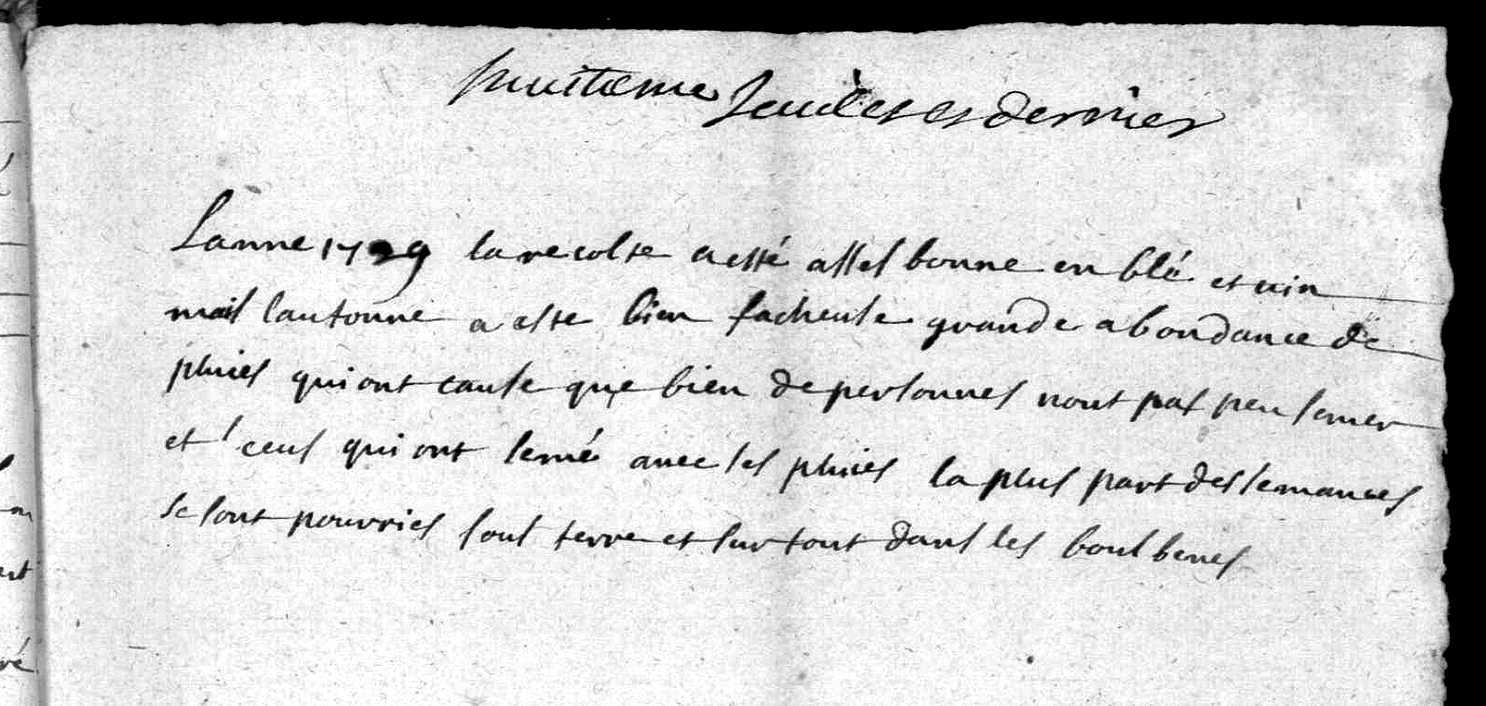 huitieme feuilet et dernier
Lanne 1729 la recolte a esté asses bonne en blé et vin
mais lautonne a este bien facheuse grande abondance de
pluies qui ont cause que bien de personnes nont pas peu semer
et ceus qui ont semé avec les pluies la plus part des semances
se sont pourries sous terre et sur tout dans les boulbenes